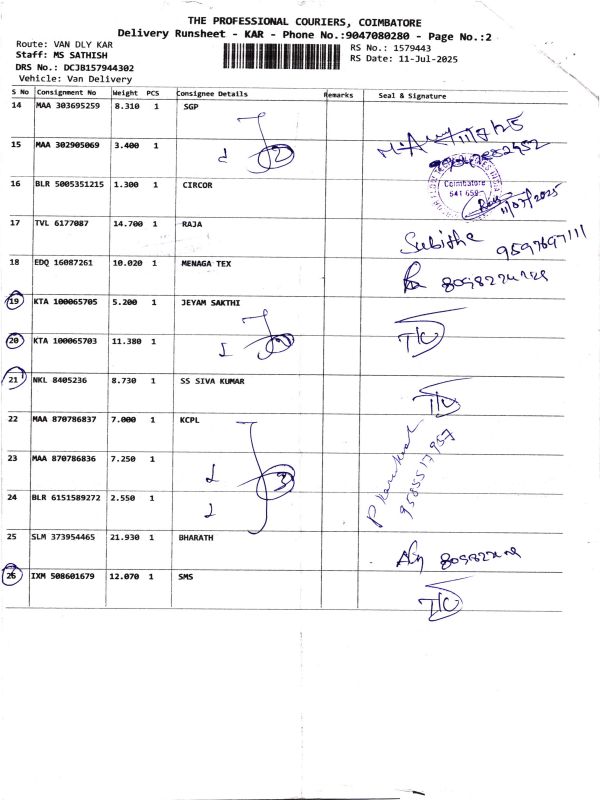 THE PROFESSIONAL COURIERS, COIMBATORE
Delivery Runsheet - KAR - Phone No.:9047080280 - Page No.:2
Route: VAN DLY KAR
Staff: MS SATHISH
DRS No.: DCJB157944302
Vehicle: Van Delivery
RS No.: 1579443
RS Date: 11-Jul-2025
S No Consignment No Weight PCS Consignee Details Remarks Seal & Signature
14 MAA 303695259 8.310 1 SGP
11/7/25
15 MAA 302905069 3.400 1
2
16 BLR 5005351215 1.300 1 CIRCOR
Coimbatore
641 659
11/07/2025
17 TVL 6177087 14.700 1 RAJA
Subitha
9597697111
18 EDQ 16087261 10.020 1 MENAGA TEX
19 KTA 100065705 5.200 1 JEYAM SAKTHI
20 KTA 100065703 11.380 1
2
T/C
21 NKL 8405236 8.730 1 SS SIVA KUMAR
T/C
22 MAA 870786837 7.000 1 KCPL
23 MAA 870786836 7.250 1
3
9585517957
24 BLR 6151589272 2.550 1
25 SLM 373954465 21.930 1 BHARATH
26 IXM 508601679 12.070 1 SMS
T/C